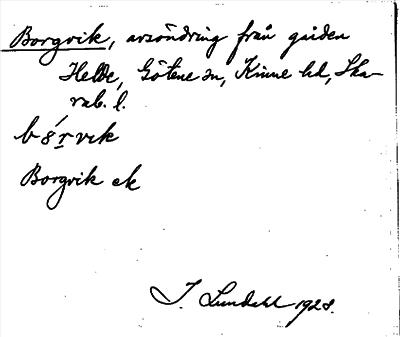 Borgvik, avsöndring från gården
Helde, Götene sn, Kinne hd, Ska-
rab. l.
Borgvik ek
J. Lundahl 1928.